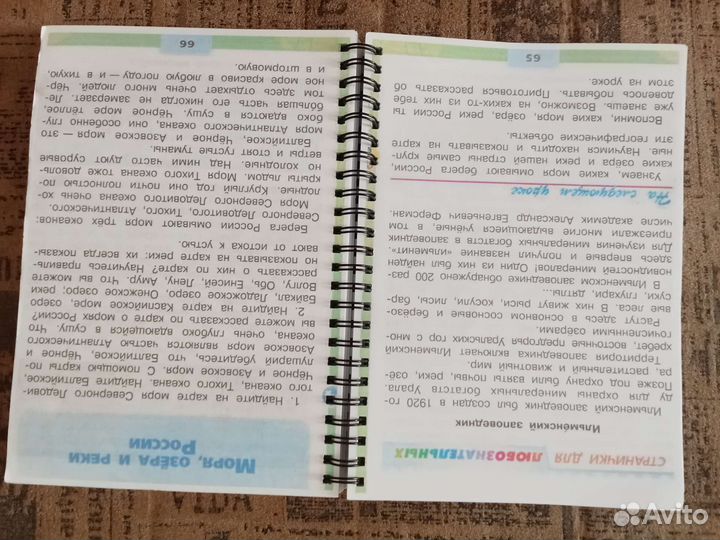 СТРАНИЧКИ ДЛЯ ЛЮБОЗНАТЕЛЬНЫХ
Ильме́нский заповедник
Ильменский заповедник был создан в 1920 го-
ду для охраны минеральных богатств Урала.
Позже под охрану были взяты почвы, реки, озё-
ра, растительный и животный мир.
Территория заповедника включает Ильменский
хребет, восточные предгорья Уральских гор с мно-
гочисленными озёрами.
Растут здесь в основном сосновые и берёзо-
вые леса. В них живут рыси, косули, лисы, бар-
суки, глухари, дятлы...
В Ильменском заповеднике обнаружено 200 раз-
новидностей минералов! Один из них был найден
здесь впервые и получил название «ильменит».
Для изучения минеральных богатств в заповедник
приезжали многие выдающиеся учёные, в том
числе академик Александр Евгеньевич Ферсман.
На следующем уроке
Узнаем, какие моря омывают берега России,
какие озёра и реки нашей страны самые круп-
ные. Научимся находить и показывать на карте
эти географические объекты.
Вспомни, какие моря, озёра, реки России ты
уже знаешь. Возможно, на каких-то из них тебе
довелось побывать. Приготовься рассказать об
этом на уроке.
65
МОРЯ, ОЗЁРА И РЕКИ
РОССИИ
1. Найдите на карте моря Северного Ледови-
того океана, Тихого океана. Найдите Балтийское,
Чёрное и Азовское моря. С помощью карты по-
лушарий убедитесь, что Балтийское, Чёрное и
Азовское моря являются частью Атлантического
океана, очень глубоко вдающейся в сушу. Что
вы можете рассказать по карте о морях России?
2. Найдите на карте Каспийское море, озеро
Байкал, Ладожское озеро, Онежское озеро; реки
Волгу, Обь, Енисей, Лену, Амур. Что вы можете
рассказать о них по карте? Научитесь правиль-
но показывать на карте реки: их всегда показы-
вают от истока к устью.
Берега России омывают моря трёх океанов:
Северного Ледовитого, Тихого, Атлантического.
Моря Северного Ледовитого океана очень хо-
лодные. Круглый год они почти полностью по-
крыты льдом. Моря Тихого океана тоже доволь-
но холодные. Над ними часто дуют суровые
ветры и стоят густые туманы.
Балтийское, Чёрное и Азовское моря — это
моря Атлантического океана, они особенно глу-
боко вдаются в сушу. Чёрное море тёплое,
большая часть его никогда не замерзает. Ле-
том здесь отдыхает очень много людей. Чёр-
ное море красиво в любую погоду — и в тихую,
и в штормовую.
66
Avito